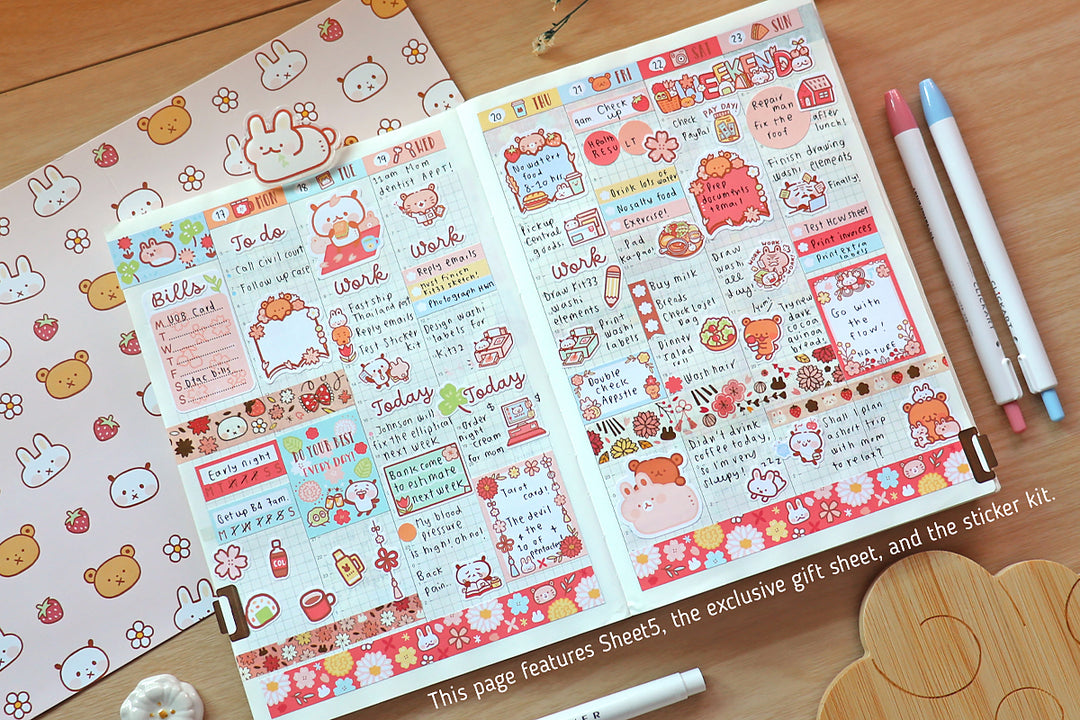 17 MON
To do
Call Civil court
Follow up case
Bills
M UOB Card
T
W
T
F
S
S
Early night
M T S S
Get up B4 7am.
DO YOUR BEST
EVERY DAY!
COL
18 TUE
Work
Fast ship
Thailand
Reply emails
Test Sticker
Kit
Today
Johnson will
fix the elliptical
next week
Bank come
to estimate
next week
My blood
pressure
is high! ohno!
Back
Pain..
19 WED
11am Mom
dentist APPT!
Work
Reply emails
must finish
Kit33 sketch!
Photograph HWN
Design washi
labels for
Kit33
Today
Order
Night
Cream
for mom
Tarot
card!
The devil
+ the +
10 of
pentacles
20 THU
No water +
food
8-20 hrs
Pickup
Central
goods.
Work
Draw Kit33
washi
elements
Print
Washi
labels
Double
check
Appstle
21 FRI
9am Check
up
Health
RESULT
Drink lots of
water
No salty food
Exercise!
Pad
Ka-pao
Buy milk
Breads
Check Lojel
Bag
Dinner
salad
Wash hair
Didn't drink
coffee today,
So I'm very
sleepy!
zzz
22 SAT
WEEKEND
Check
PayPal
PAY DAY!
Prep
documents
+ email
Draw
washi
all
day!
WORK
Yum!
23 SUN
Repair
man
fix the
roof
after
lunch!
Finish drawing
washi elements
Finally!
Test HCW sheet
Print invoices
Print extra
labels
Try new
dark
cocoa
quinoa
bread
Go with
the
flow!
NATURE
Shall I plan
a short trip
with mom
to relax?
CLICKART
CLICKART
This page features Sheet5, the exclusive gift sheet, and the sticker kit.